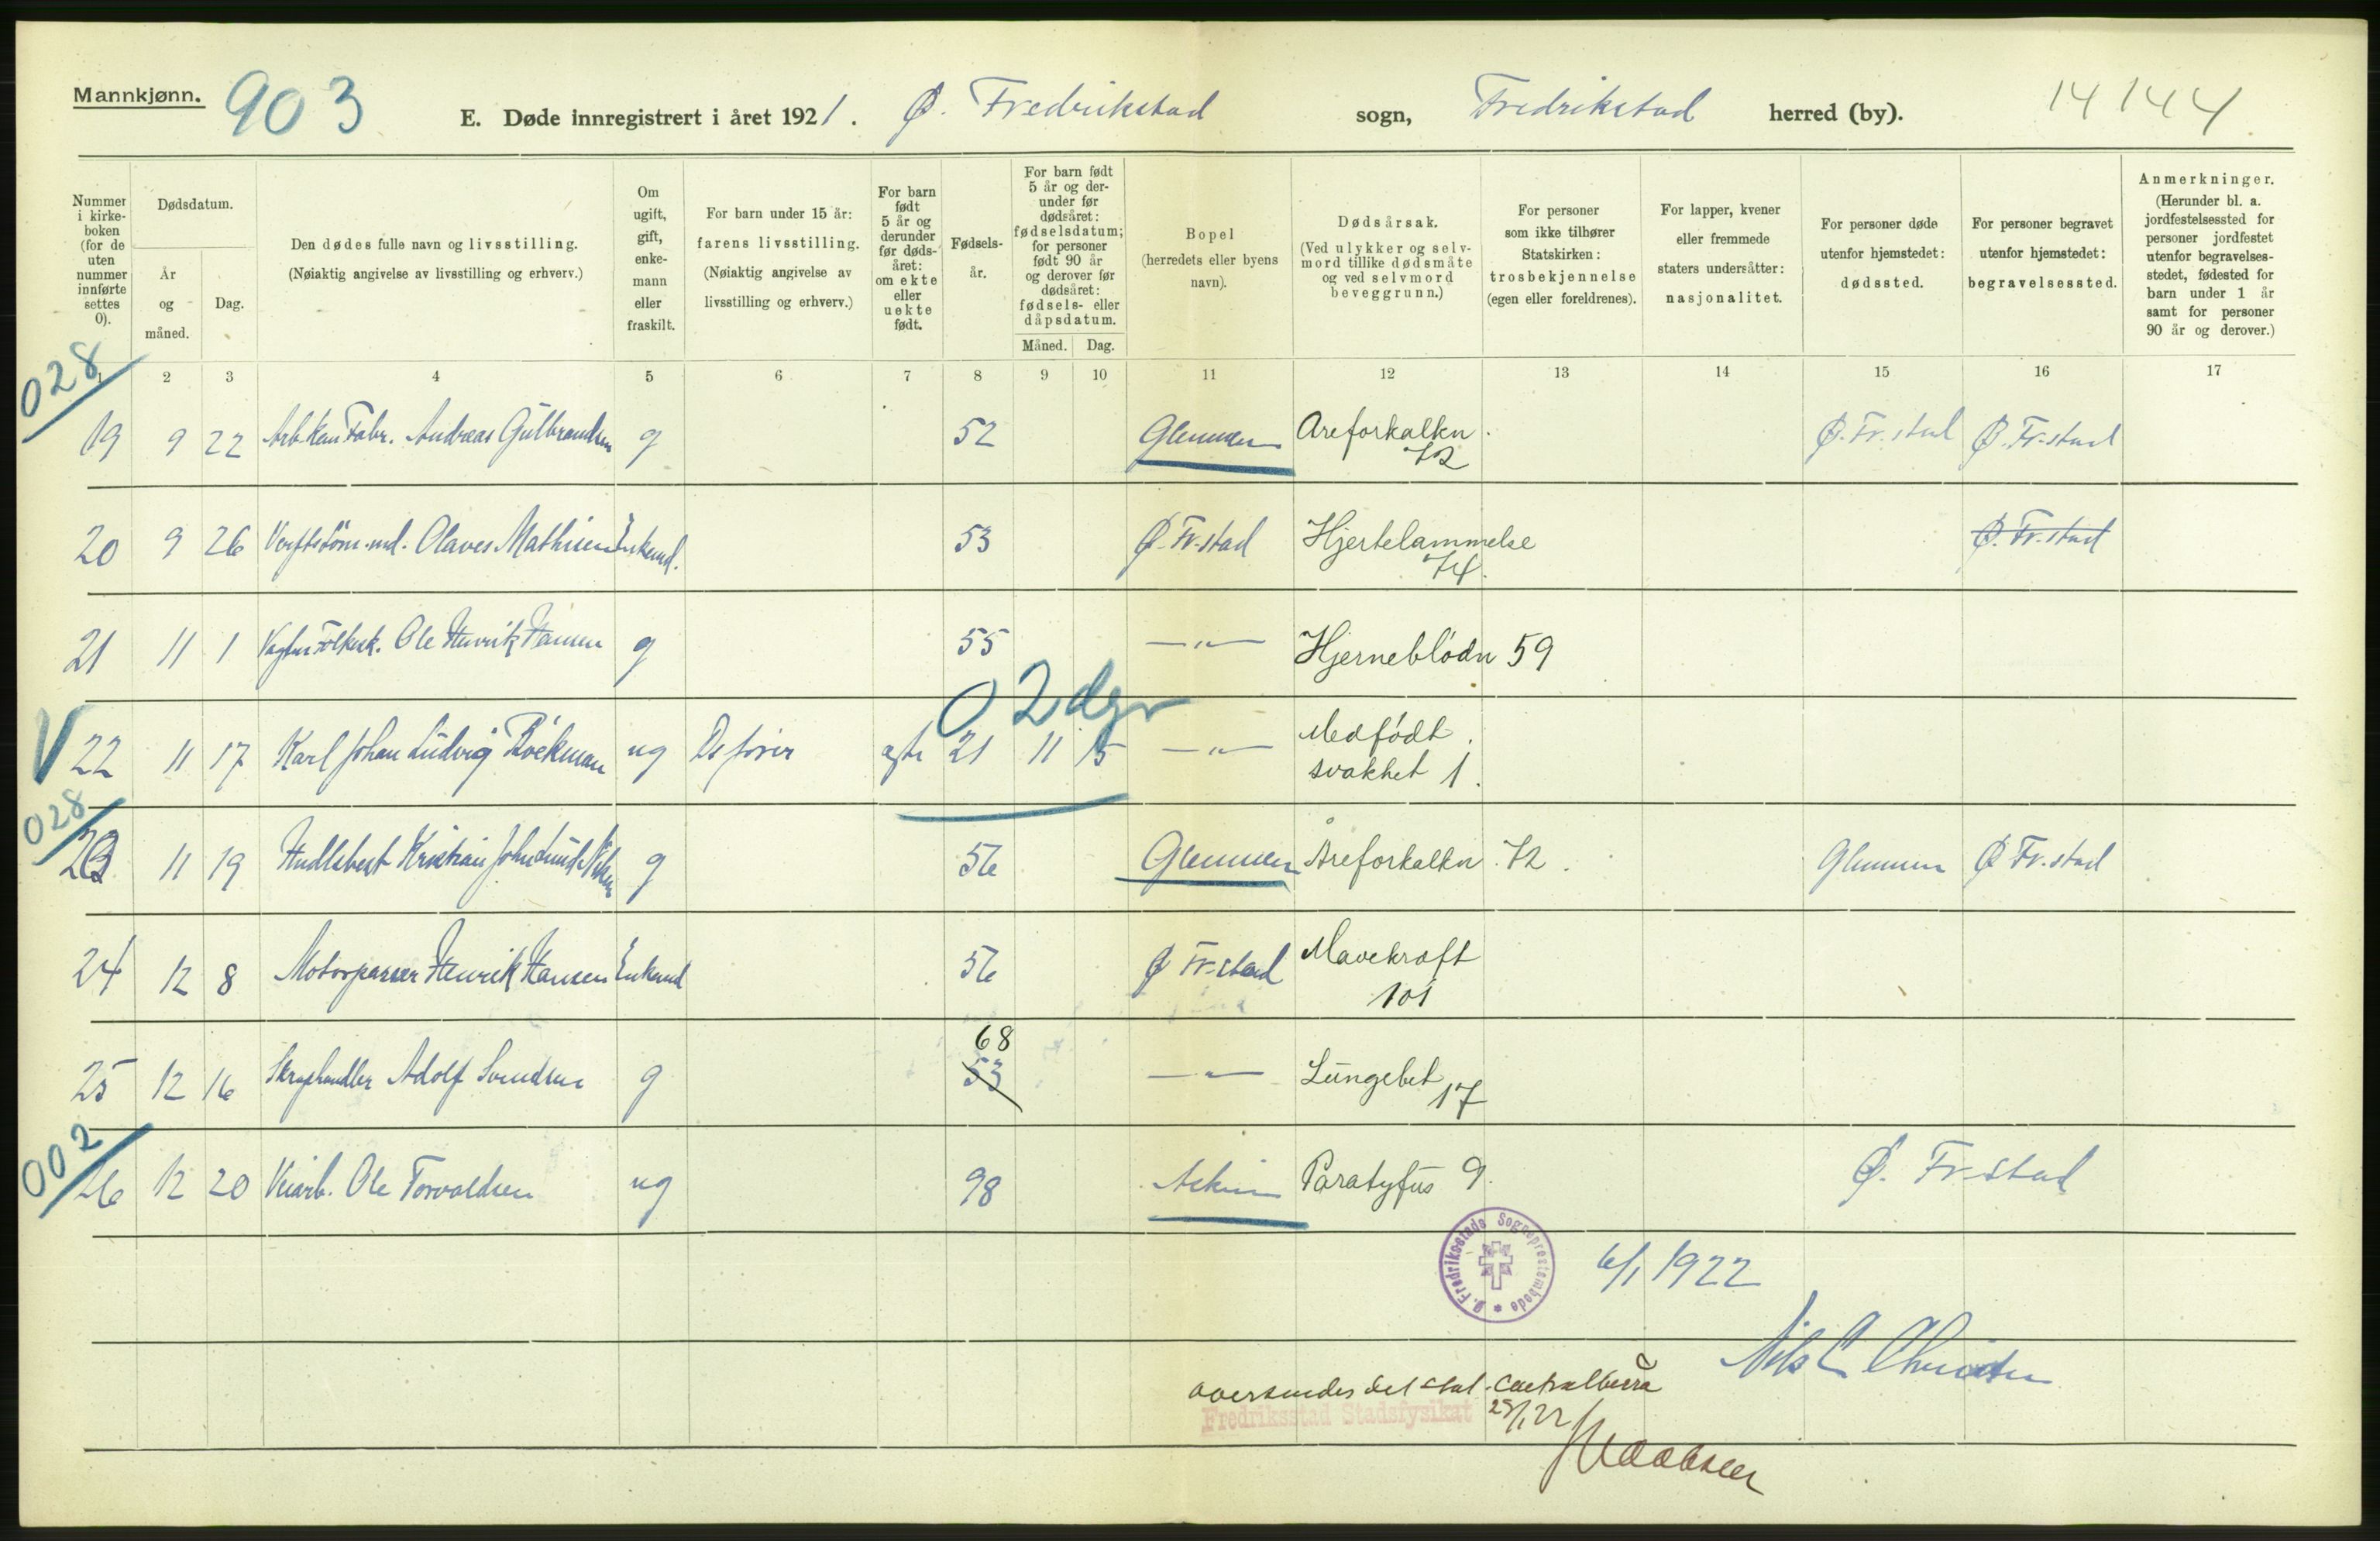 Mannkjønn. 903 E. Døde innregistrert i året 1921. Ø. Fredrikstad sogn, Fredrikstad herred (by). 14144
Nummer i kirke-boken (for de uten nummer innførte settes 0).
Dødsdatum.
År og måned.
Dag.
Den dødes fulle navn og livsstilling.
(Nøiaktig angivelse av livsstilling og erhverv.)
Om ugift, gift, enke-mann eller fraskilt.
For barn under 15 år: farens livsstilling.
(Nøiaktig angivelse av livsstilling og erhverv.)
For barn født 5 år og derunder før døds-året: om ekte eller uekte født.
Fødsels-år.
For barn født 5 år og der-under før dødsåret: fødselsdatum; for personer født 90 år og derover før dødsåret: fødsels- eller dåpsdatum.
Måned. Dag.
Bopel
(herredets eller byens navn).
Dødsårsak.
(Ved ulykker og selv-mord tillike dødsmåte og ved selvmord beveggrunn.)
For personer som ikke tilhører Statskirken: trosbekjennelse (egen eller foreldrenes).
For lapper, kvener eller fremmede staters undersåtter: nasjonalitet.
For personer døde utenfor hjemstedet: dødssted.
For personer begravet utenfor hjemstedet: begravelsessted.
Anmerkninger.
(Herunder bl. a. jordfestelsessted for personer jordfestet utenfor begravelses-stedet, fødested for barn under 1 år samt for personer 90 år og derover.)
1 2 3 4 5 6 7 8 9 10 11 12 13 14 15 16 17
028
19 9 22 Fabr. Andreas Gulbrandsen g 52 Glemmen Areforkalkn. 72 Ø. Fr.stad Ø. Fr.stad
20 9 26 Olaves Mathisen Enkemd. 53 Ø. Fr.stad Hjertelammelse 74. Ø. Fr.stad
21 11 1 Ole Henrik Hansen g 55 —"— Hjerneblødn 59
02 dgr
V 22 11 17 Karl Johan Ludvig Bøckman ug egte 21 11 15 —"— Medfødt svakhet 1.
028
23 11 19 Kristian John g 56 Glemmen Åreforkalkn. 72. Glemmen Ø Fr.stad
24 12 8 Motorpasser Henrik Hansen Enkemd 56 Ø Fr.stad Mavekræft 101
68
25 12 16 Skraphandler Adolf Svendsen g 53 —"— Lungebet 17
002
26 12 20 Veiarb. Ole Torvaldsen ug 98 Askim Paratyfus 9. Ø. Fr.stad
Ø. Fredriksstads Sogneprestembede
6/1 1922
Nils C
oversendes det stat. Centralbyrå
Fredriksstad Stadsfysikat